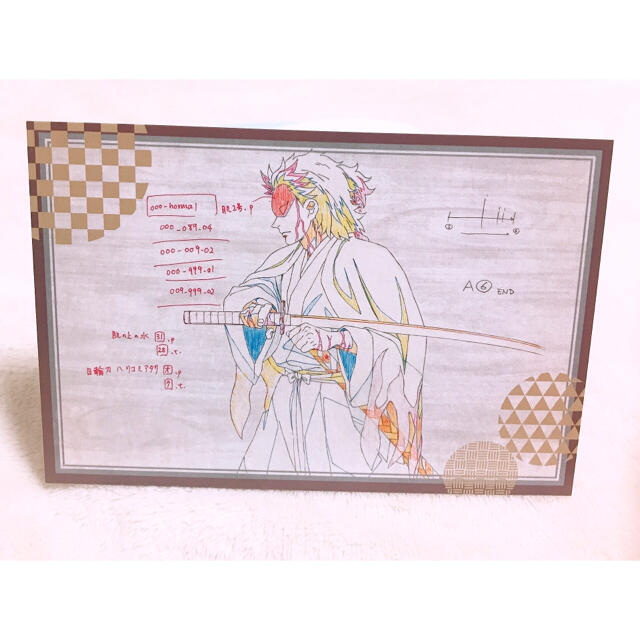 000-normal
肌2号.p
000-089-04
000-009-02
000-999-01
009-999-02
肌の上の水 31.p
28.t.
日輪刀ハリコミアタリ
A⑥ END